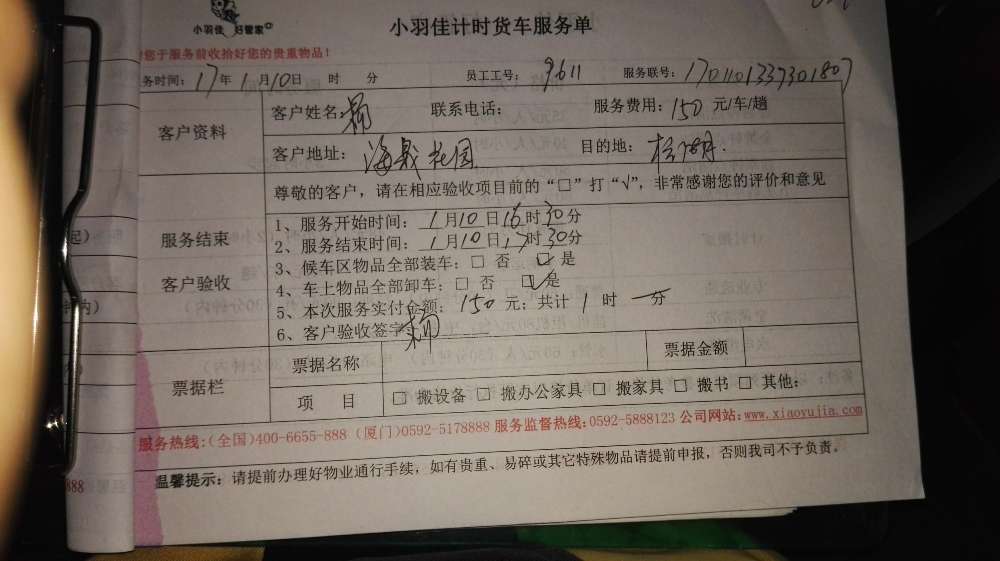 小羽佳 好管家
小羽佳计时货车服务单
您于服务前收拾好您的贵重物品！
务时间：17年1月10日 时 分 员工工号：9611 服务联号：
客户资料
客户姓名： 联系电话： 服务费用：150 元/车/趟
客户地址：海晟花园 目的地：
尊敬的客户，请在相应验收项目前的“□”打“√”，非常感谢您的评价和意见
服务结束
客户验收
1、服务开始时间：1月10日16时30分
2、服务结束时间：1月10日17时30分
3、候车区物品全部装车：□ 否 ☑ 是
4、车上物品全部卸车：□ 否 ☑ 是
5、本次服务实付金额：150 元；共计 1 时 一分
6、客户验收签字
票据栏
票据名称 票据金额
项 目 □ 搬设备 □ 搬办公家具 □ 搬家具 □ 搬书 □ 其他：
服务热线：（全国）400-6655-888（厦门）0592-5178888 服务监督热线：0592-5888123 公司网站：www.xiaoyujia.com
温馨提示：请提前办理好物业通行手续，如有贵重、易碎或其它特殊物品请提前申报，否则我司不予负责。
888